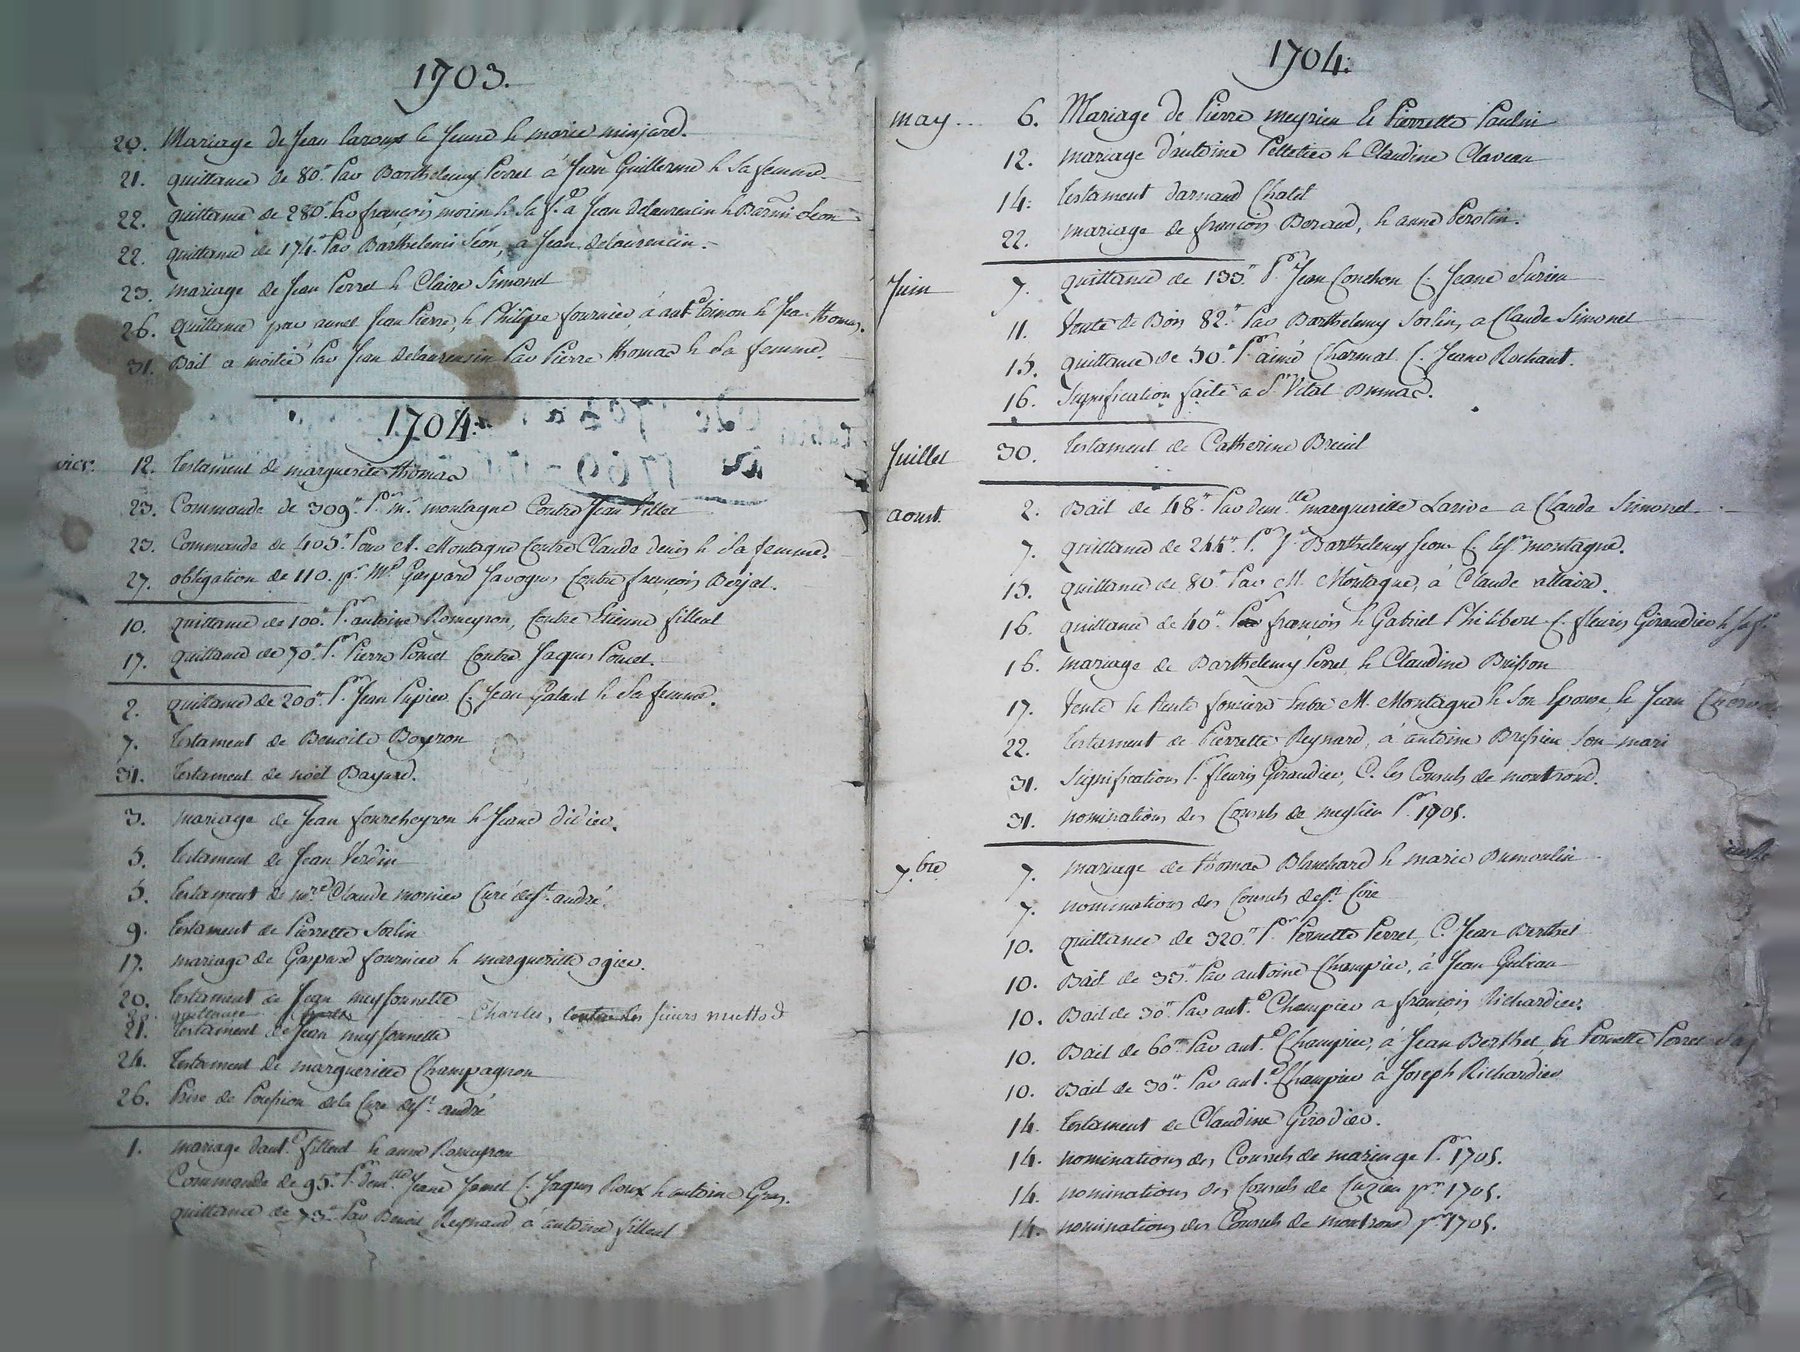 1703.
20. Mariage de Jean Laroux le Jeune & marie minjard.
21. quittance de 80tt Par Barthelemy Perret a Jean Guillerme & Sa femme.
22. quittance de 280tt Par françois morin & Sa fe a Jean Delaurencin & leon
22. quittance de 174tt Par Barthelemi leon, a Jean Delaurencin.
23. mariage de Jean Perret & Claire Simonet
26. quittance par Jean Pierre, & Philippe fournier, a antoine & Jean thomas.
31. Bail a moitié Par Jean Delaurensin Par Pierre thomas & Sa femme.
1704.
vier. 12. testament de marguerite thomas
23. Commande de 309tt Pr Mr montagne Contre Jean filleu
23. Commande de 405tt Pour M. Montagne Contre Claude denis & Sa femme.
27. obligation de 110. pr Me Gaspard Javogues Contre françois Berjat.
10. quittance de 100tt Pr antoine Romeyron, Contre Etienne filleul
17. quittance de 70tt Pr Pierre Poncet Contre Jaques Poncet.
2. quittance de 200tt Pr Jean Pupier C. Jean Galand & Sa femme.
7. testament de Benoite Boyron
31. testament de noël Bayard.
3. mariage de Jean foureheyron & Jeane didier.
5. testament de Jean Verdin
5. testament de mre Claude monier Curé de St andré.
9. testament de Pierrette Sorlin
17. mariage de Gaspard fournier & margueritte ogier.
20. testament de Jean meyssonnette
quittance Charles, contre les sieurs
21. testament de Jean meyssonnette
24. testament de margueritte Champagnon
26. Prise de Possession de la Cure de St andré
1. mariage dante filleul & anne Romeyron
Commande de 95tt Pr demlle Jeane Jamet C. Jaques Rioux & antoine Gras.
quittance de 73tt Par Benoit Reynaud a antoine filleul
1704.
may 6. Mariage de Pierre meyrieu & Pierrette Paulin
12. mariage dantoine Pelletier & Claudine Claveau
14. testament darnaud Chalet
22. mariage de françois Beraud, & anne Perotin.
Juin 7. quittance de 133tt Pr Jean Conchon C. Jeane Surieu
11. Vente de Bois 82tt Par Barthelemy Sorlin, a Claude Simonet
15. quittance de 50tt Pr aimé Charmat C. Jeane Rochant.
16. Signification faite a Sr Vital Dumas.
Juillet 30. testament de Catherine Breuil
aoust 2. Bail de 48tt Par demlle margueritte Larive a Claude Simonet
7. quittance de 244tt Pr Barthelemy leon C. le Sr montagne.
15. quittance de 80tt Par M. Montagne, à Claude allaire.
16. quittance de 40tt françois & Gabriel Philibert C. fleuris Giraudier & Sa fe
16. mariage de Barthelemy Perret & Claudine Buisson
17. Vente & Rente fonciere Entre M. Montagne & Son Epouse, & Jean
22. testament de Pierrette Reynard, à antoine Bressieu Son mari
31. Signification Pr fleuris Giraudier, C. les Consuls de montrond.
31. nominations des Consuls de meylieu Pr 1705.
7.bre 7. mariage de thomas Blanchard & marie Dumoulin
7. nominations des Consuls de St Cire
10. quittance de 320tt Pr Pernette Perret, C. Jean Berthet
10. Bail de 35tt Par antoine Champier, à Jean
10. Bail de 30tt Par ante Champier a françois Richardier.
10. Bail de 60tt Par ante Champier, à Jean Berthet, & Pernette Perret
10. Bail de 30tt Par ante Champier à Joseph Richardier
14. testament de Claudine Girodier.
14. nominations des Consuls de maringe Pr 1705.
14. nominations des Consuls de Cuzieu pr 1705.
14. nominations des Consuls de montrond pr 1705.